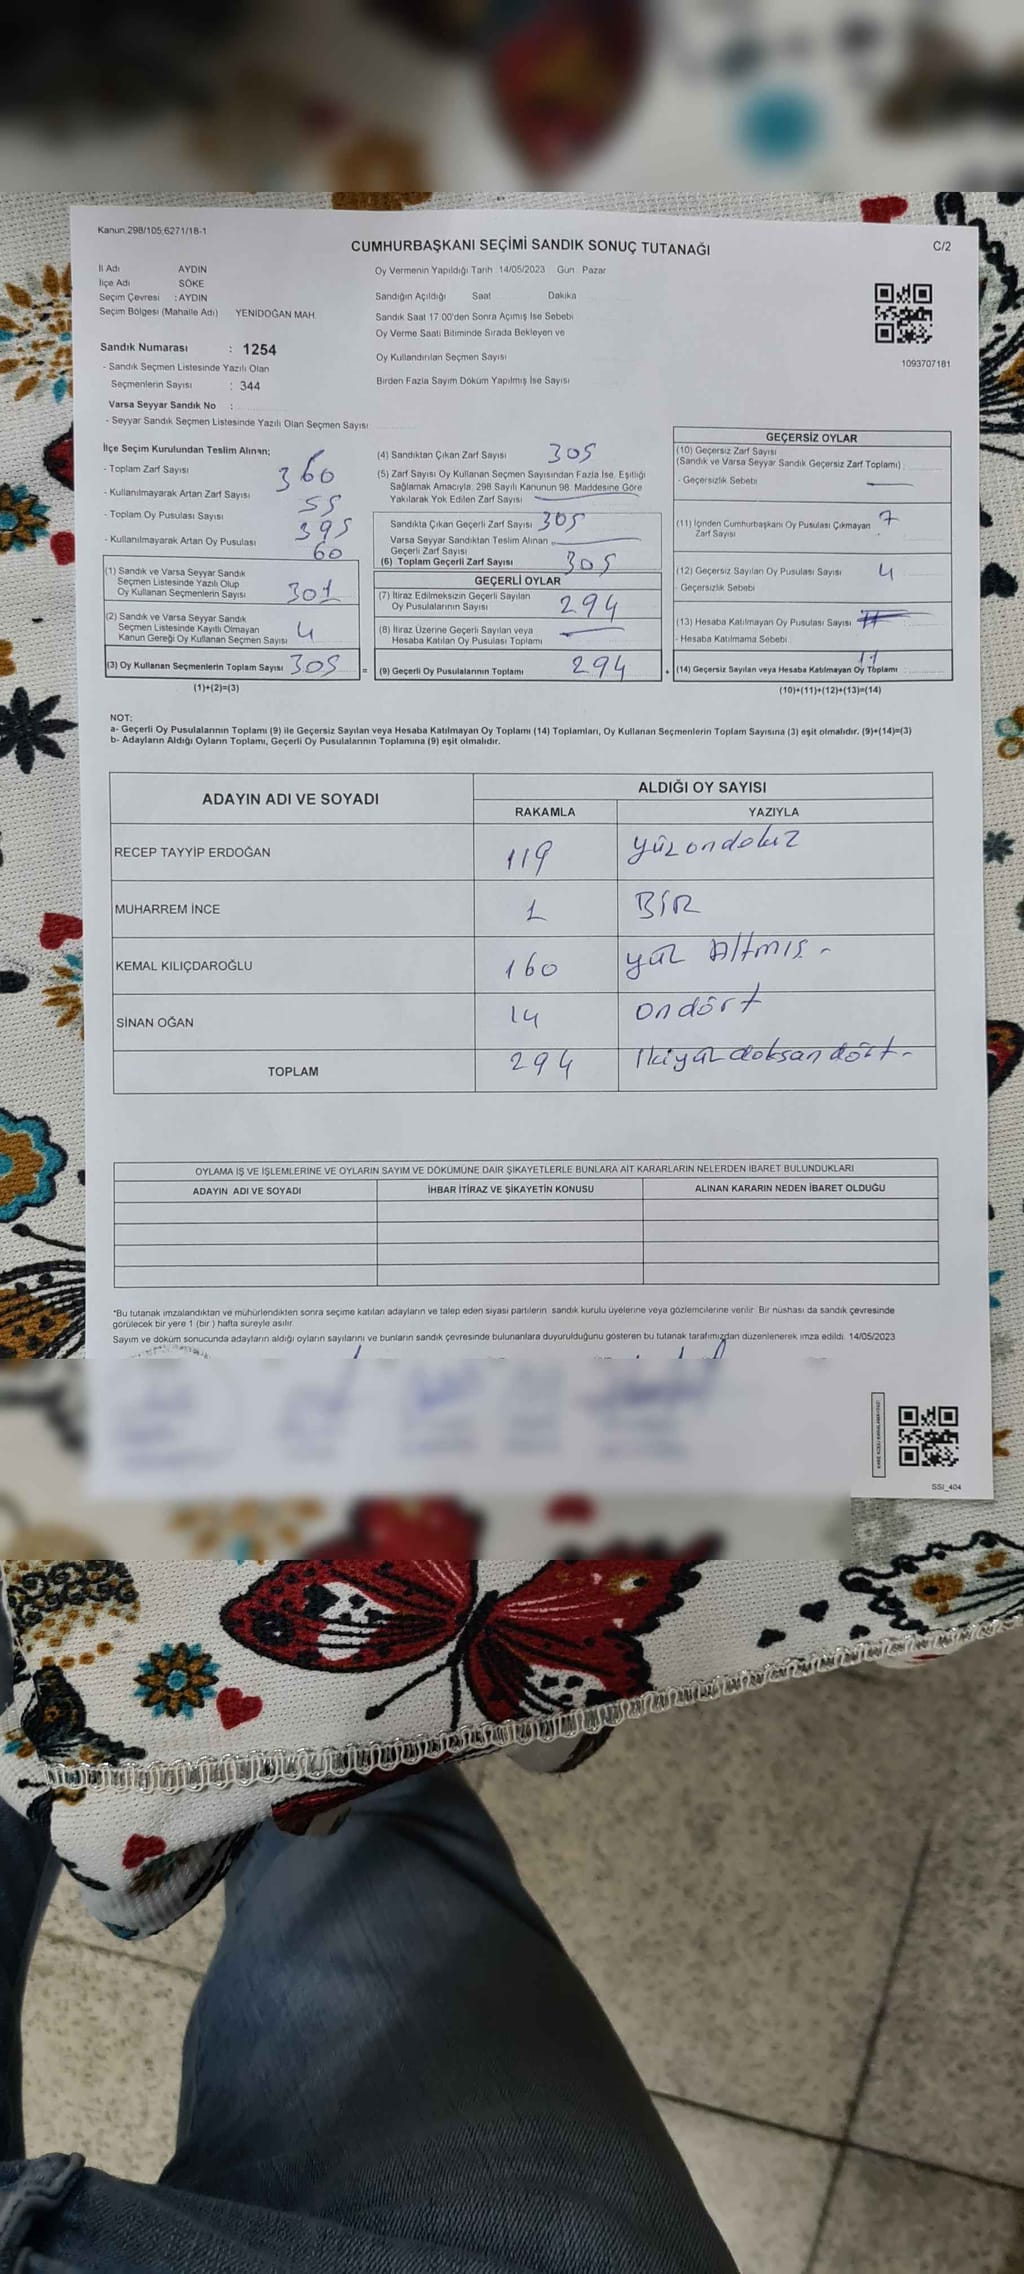 Kanun.298/105,6271/18-1
CUMHURBAŞKANI SEÇİMİ SANDIK SONUÇ TUTANAĞI
C/2
İl Adı AYDIN
İlçe Adı SÖKE
Seçim Çevresi : AYDIN
Seçim Bölgesi (Mahalle Adı) YENİDOĞAN MAH.
Sandık Numarası : 1254
- Sandık Seçmen Listesinde Yazılı Olan
Seçmenlerin Sayısı : 344
Varsa Seyyar Sandık No :
- Seyyar Sandık Seçmen Listesinde Yazılı Olan Seçmen Sayısı
Oy Vermenin Yapıldığı Tarih 14/05/2023 Gün Pazar
Sandığın Açıldığı Saat Dakika
Sandık Saat 17.00'den Sonra Açımış İse Sebebi
Oy Verme Saati Bitiminde Sırada Bekleyen ve
Oy Kullandırılan Seçmen Sayısı
Birden Fazla Sayım Döküm Yapılmış İse Sayısı
1093707181
İlçe Seçim Kurulundan Teslim Alınan;
- Toplam Zarf Sayısı 360
- Kullanılmayarak Artan Zarf Sayısı 55
- Toplam Oy Pusulası Sayısı 395
- Kullanılmayarak Artan Oy Pusulası 60
(1) Sandık ve Varsa Seyyar Sandık
Seçmen Listesinde Yazılı Olup
Oy Kullanan Seçmenlerin Sayısı 301
(2) Sandık ve Varsa Seyyar Sandık
Seçmen Listesinde Kayıtlı Olmayan
Kanun Gereği Oy Kullanan Seçmen Sayısı 4
(3) Oy Kullanan Seçmenlerin Toplam Sayısı 305 =
(1)+(2)=(3)
(4) Sandıktan Çıkan Zarf Sayısı 305
(5) Zarf Sayısı Oy Kullanan Seçmen Sayısından Fazla İse, Eşitliği
Sağlamak Amacıyla, 298 Sayılı Kanunun 98. Maddesine Göre
Yakılarak Yok Edilen Zarf Sayısı
Sandıkta Çıkan Geçerli Zarf Sayısı 305
Varsa Seyyar Sandıktan Teslim Alınan
Geçerli Zarf Sayısı
(6) Toplam Geçerli Zarf Sayısı 305
GEÇERLİ OYLAR
(7) İtiraz Edilmeksizin Geçerli Sayılan
Oy Pusulalarının Sayısı 294
(8) İtiraz Üzerine Geçerli Sayılan veya
Hesaba Katılan Oy Pusulası Toplamı
(9) Geçerli Oy Pusulalarının Toplamı 294 +
GEÇERSİZ OYLAR
(10) Geçersiz Zarf Sayısı
(Sandık ve Varsa Seyyar Sandık Geçersiz Zarf Toplamı)
- Geçersizlik Sebebi
(11) İçinden Cumhurbaşkanı Oy Pusulası Çıkmayan 7
Zarf Sayısı
(12) Geçersiz Sayılan Oy Pusulası Sayısı 4
- Geçersizlik Sebebi
(13) Hesaba Katılmayan Oy Pusulası Sayısı
- Hesaba Katılmama Sebebi
(14) Geçersiz Sayılan veya Hesaba Katılmayan Oy Toplamı 11
(10)+(11)+(12)+(13)=(14)
NOT:
a- Geçerli Oy Pusulalarının Toplamı (9) ile Geçersiz Sayılan veya Hesaba Katılmayan Oy Toplamı (14) Toplamları, Oy Kullanan Seçmenlerin Toplam Sayısına (3) eşit olmalıdır. (9)+(14)=(3)
b- Adayların Aldığı Oyların Toplamı, Geçerli Oy Pusulalarının Toplamına (9) eşit olmalıdır.
ADAYIN ADI VE SOYADI ALDIĞI OY SAYISI
RAKAMLA YAZIYLA
RECEP TAYYİP ERDOĞAN 119 yüzondokuz
MUHARREM İNCE 1 BİR
KEMAL KILIÇDAROĞLU 160 yüz Altmış -
SİNAN OĞAN 14 ondört
TOPLAM 294 İkiyüz doksan dört -
OYLAMA İŞ VE İŞLEMLERİNE VE OYLARIN SAYIM VE DÖKÜMÜNE DAİR ŞİKAYETLERLE BUNLARA AİT KARARLARIN NELERDEN İBARET BULUNDUKLARI
ADAYIN ADI VE SOYADI İHBAR İTİRAZ VE ŞİKAYETİN KONUSU ALINAN KARARIN NEDEN İBARET OLDUĞU
*Bu tutanak imzalandıktan ve mühürlendikten sonra seçime katılan adayların ve talep eden siyasi partilerin sandık kurulu üyelerine veya gözlemcilerine verilir. Bir nüshası da sandık çevresinde
görülecek bir yere 1 (bir) hafta süreyle asılır.
Sayım ve döküm sonucunda adayların aldığı oyların sayılarını ve bunların sandık çevresinde bulunanlara duyurulduğunu gösteren bu tutanak tarafımızdan düzenlenerek imza edildi. 14/05/2023
SSI_404